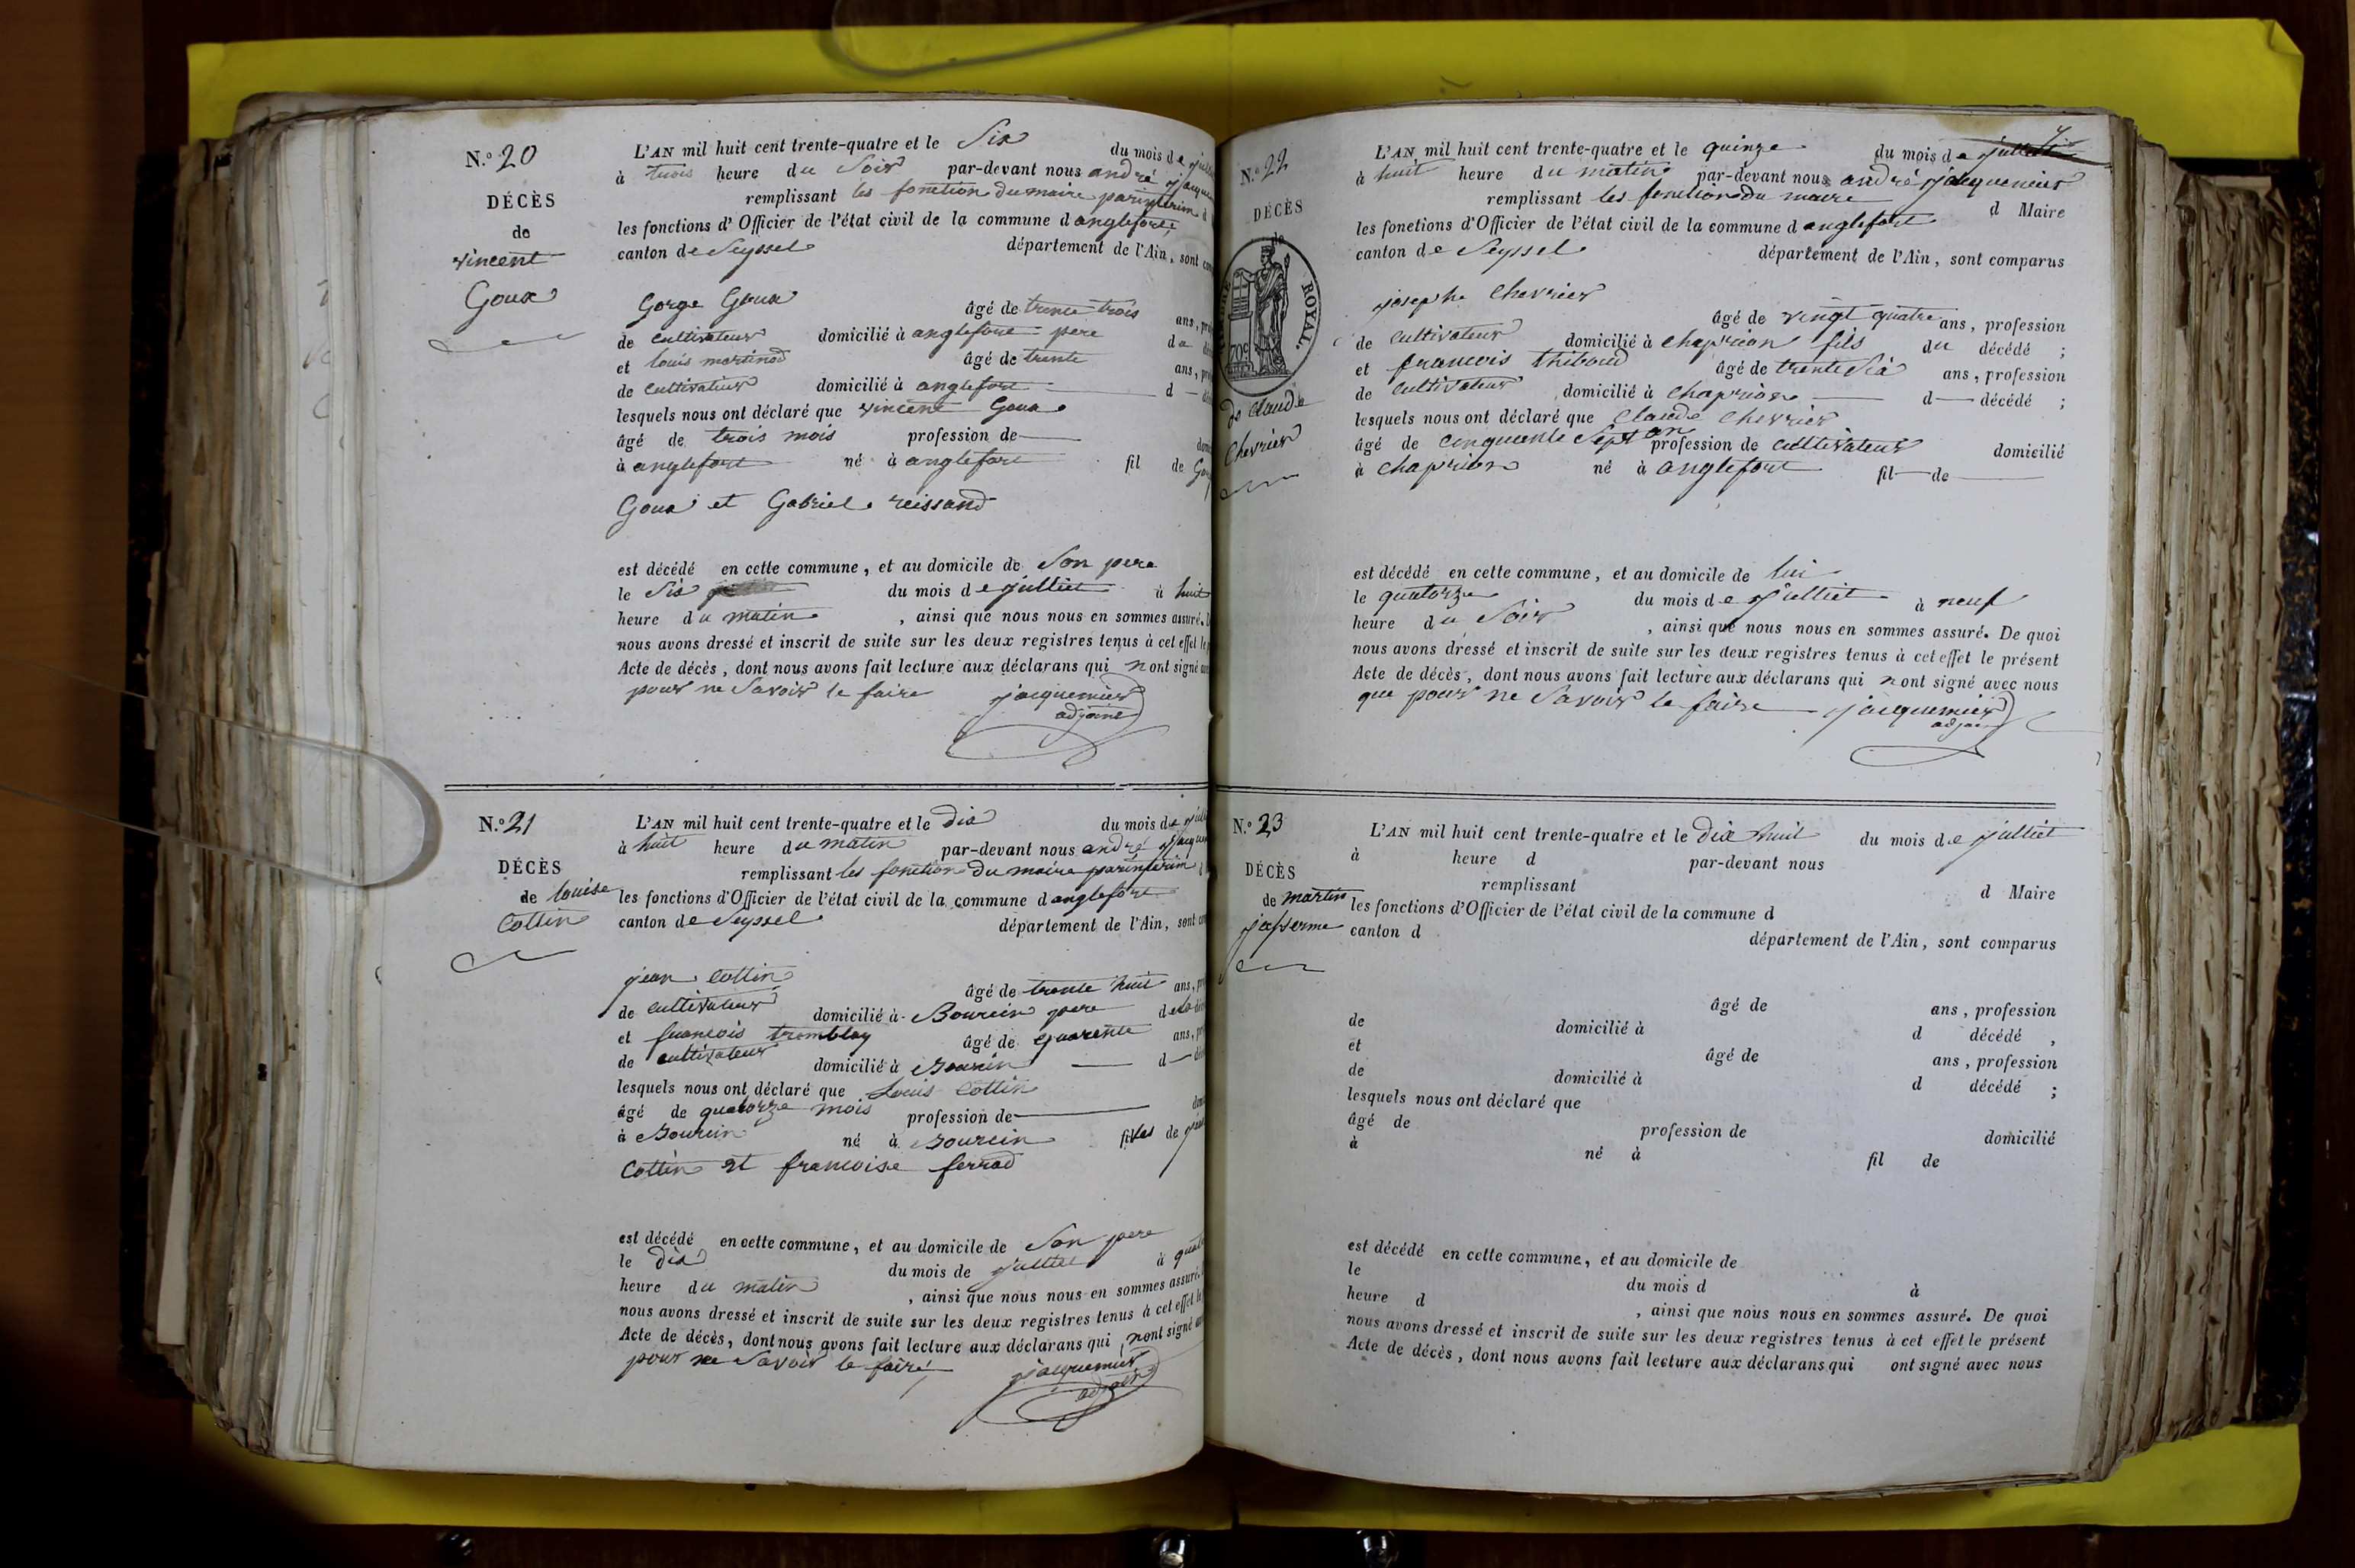 N.º 20
DÉCÈS
de
vincent
Goux
L'AN mil huit cent trente-quatre et le Six du mois de juillet
à trois heure du Soir par-devant nous andré jacquemier
remplissant les fonction du maire parinterim d
les fonctions d'Officier de l'état civil de la commune d anglefort
canton de Seyssel département de l'Ain, sont com
Gorge Goux âgé de trente trois ans, pro
de Cultivateur domicilié à anglefort pere du déc
et louis martinod âgé de trente ans, pro
de Cultivateur domicilié à anglefort d — déc
lesquels nous ont déclaré que vincent Goux
âgé de trois mois profession de — dom
à anglefort né à anglefort fil de Gor
Goux et Gabriel reissand
est décédé en cette commune, et au domicile de Son pere
le Six du mois de juilliet à huit
heure du matin, ainsi que nous nous en sommes assuré.
nous avons dressé et inscrit de suite sur les deux registres tenus à cet effet le
Acte de décès, dont nous avons fait lecture aux déclarans qui n ont signé
pour ne Savoir le faire jacquemier
adjoint
N.º 21
DÉCÈS
de louise
Cottin
L'AN mil huit cent trente-quatre et le dix du mois de juil
à huit heure du matin par-devant nous andré jacquem
remplissant les fonction du maire parinterim d
les fonctions d'Officier de l'état civil de la commune d anglefort
canton de Seyssel département de l'Ain, sont com
jean Cottin âgé de trente huit ans, pro
de Cultivateur domicilié à Bourcin pere de la déc
et francois tremblay âgé de quarente ans, pro
de cultivateur domicilié à Bourcin — d — déc
lesquels nous ont déclaré que Louis Cottin
âgé de quatorze mois profession de — dom
à Bourcin né à Bourcin filles de jean
Cottin et francoise ferrod
est décédé en cette commune, et au domicile de Son pere
le dix du mois de juilliet à quat
heure du matin, ainsi que nous nous en sommes assuré.
nous avons dressé et inscrit de suite sur les deux registres tenus à cet effet le
Acte de décès, dont nous avons fait lecture aux déclarans qui n ont signé
pour ne Savoir le faire jacquemier
adjoint
N.º 22
DÉCÈS
de
TIMBRE ROYAL.
70c
de Claude
Chevrier
L'AN mil huit cent trente-quatre et le quinze du mois de juilliet
à huit heure du matin par-devant nous andré jacquemier
remplissant les fonction du maire d Maire
les fonctions d'Officier de l'état civil de la commune d anglefort
canton de Seyssel département de l'Ain, sont comparus
josephe Chevrier âgé de vingt quatre ans, profession
de Cultivateur domicilié à Chaprion fils du décédé ;
et francois thiboud âgé de trente Six ans, profession
de Cultivateur domicilié à Chaprion — d — décédé ;
lesquels nous ont déclaré que Claude Chevrier
âgé de cinquente Sept an profession de Cultivateur domicilié
à Chaprion né à anglefort fil — de —
est décédé en cette commune, et au domicile de lui
le quatorze du mois de juilliet à neuf
heure du Soir, ainsi que nous nous en sommes assuré. De quoi
nous avons dressé et inscrit de suite sur les deux registres tenus à cet effet le présent
Acte de décès, dont nous avons fait lecture aux déclarans qui n ont signé avec nous
que pour ne Savoir le faire jacquemier
adjoint
N.º 23
DÉCÈS
de martin
jasserme
L'AN mil huit cent trente-quatre et le Dix huit du mois de juilliet
à heure d par-devant nous
remplissant d Maire
les fonctions d'Officier de l'état civil de la commune d
canton d département de l'Ain, sont comparus
âgé de ans, profession
de domicilié à d décédé ,
et âgé de ans, profession
de domicilié à d décédé ;
lesquels nous ont déclaré que
âgé de profession de domicilié
à né à fil de
est décédé en cette commune, et au domicile de
le du mois d à
heure d , ainsi que nous nous en sommes assuré. De quoi
nous avons dressé et inscrit de suite sur les deux registres tenus à cet effet le présent
Acte de décès, dont nous avons fait lecture aux déclarans qui ont signé avec nous